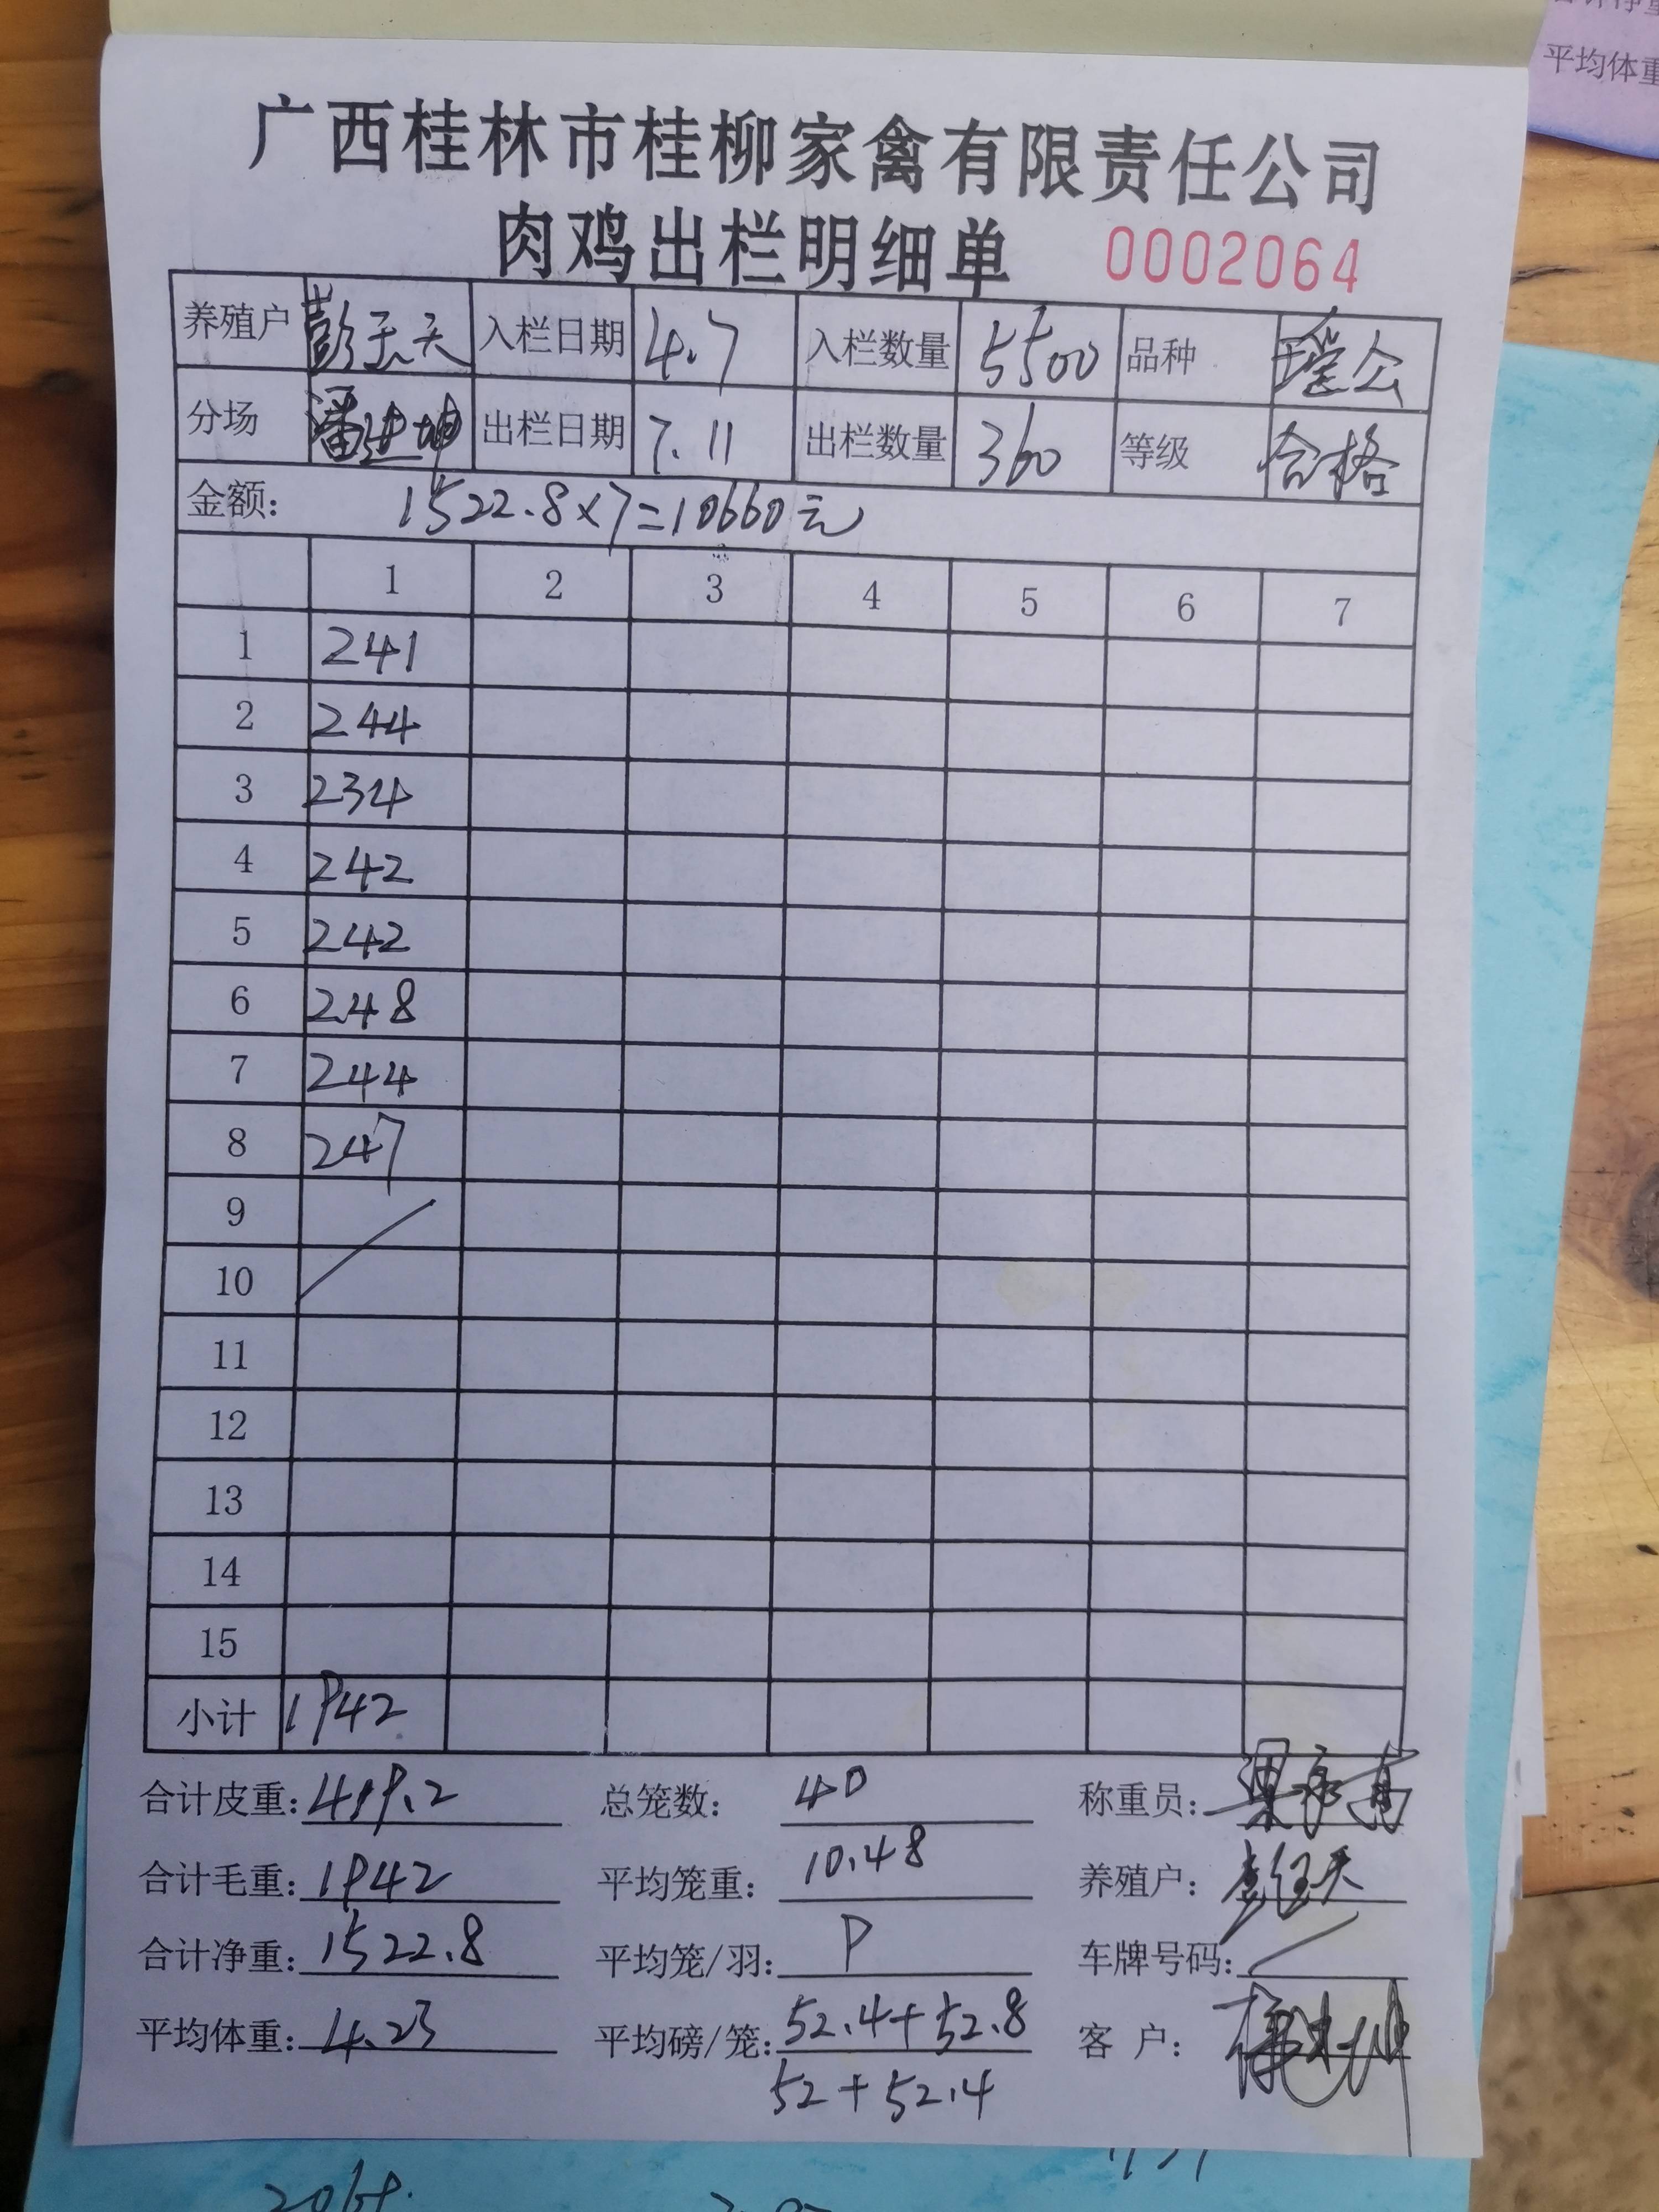 广西桂林市桂柳家禽有限责任公司
肉鸡出栏明细单 0002064
养殖户 彭天 入栏日期 4.7 入栏数量 5500 品种 瑶公
分场 潘进坤 出栏日期 7.11 出栏数量 360 等级 合格
金额: 1522.8×7=10660元
1 2 3 4 5 6 7
1 241
2 244
3 234
4 242
5 242
6 248
7 244
8 247
9
10
11
12
13
14
15
小计 1942
合计皮重: 419.2 总笼数: 40 称重员:
合计毛重: 1942 平均笼重: 10.48 养殖户:
合计净重: 1522.8 平均笼/羽: 9 车牌号码:
平均体重: 4.23 平均磅/笼: 52.4+52.8 客户:
52+52.4
平均体重